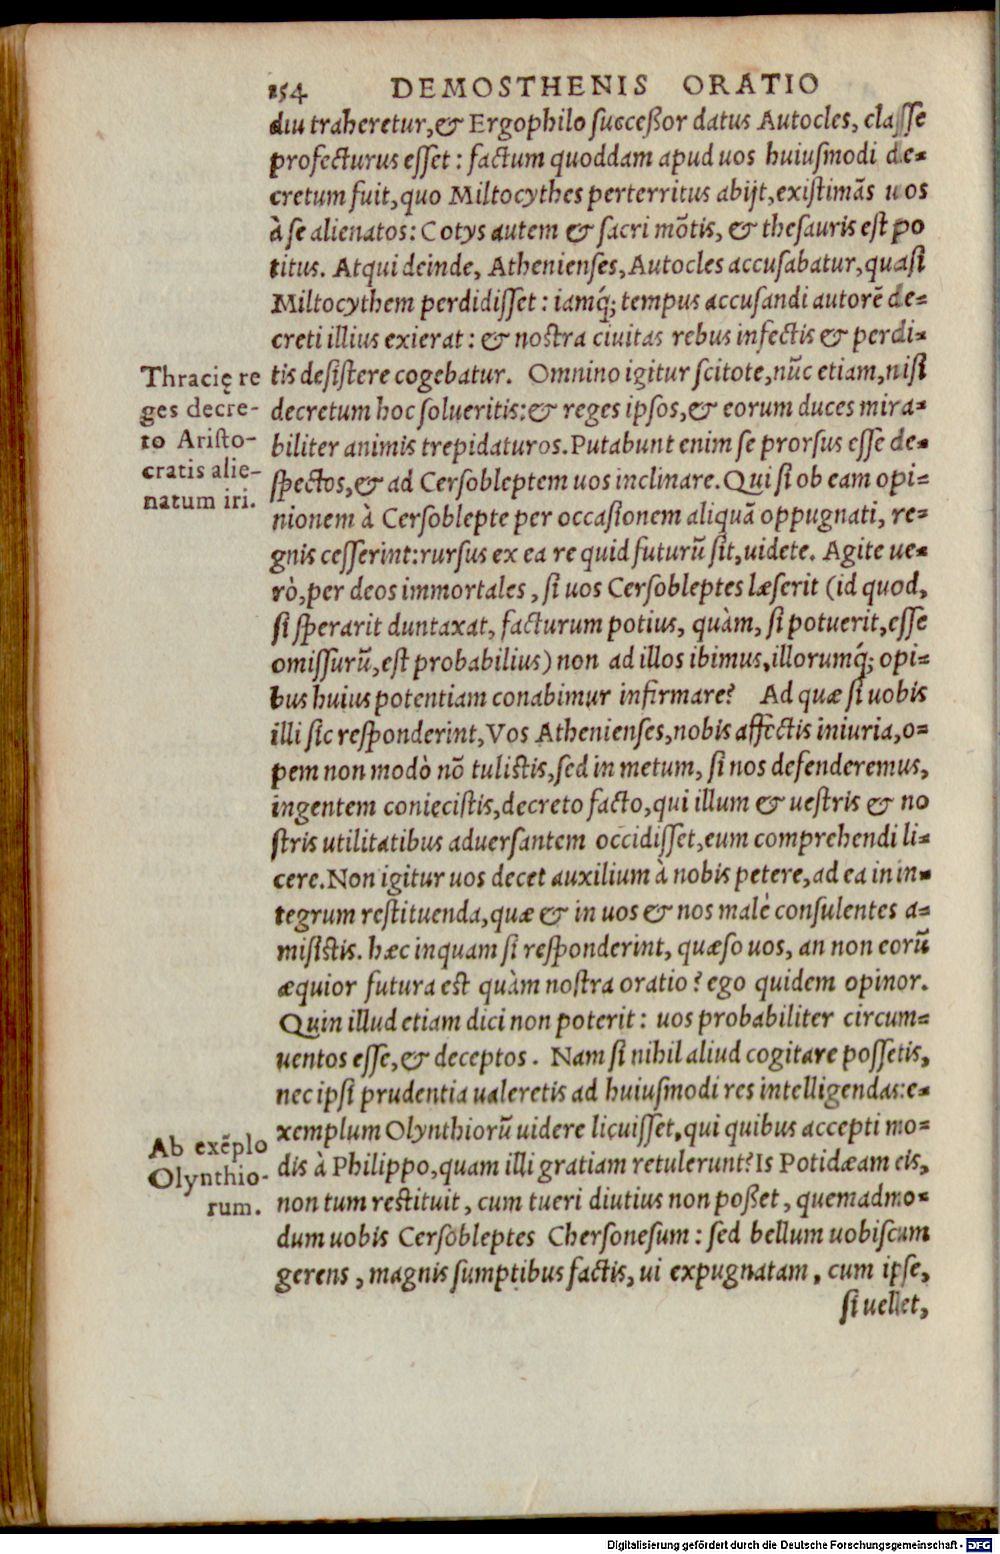 154 DEMOSTHENIS ORATIO
diu traheretur, & Ergophilo successor datus Autocles, classe
profecturus esset: factum quoddam apud uos huiusmodi de=
cretum fuit, quo Miltocythes perterritus abijt, existimãs uos
à se alienatos: Cotys autem & sacri mõtis, & thesauris est po
titus. Atqui deinde, Athenienses, Autocles accusabatur, quasi
Miltocythem perdidisset: iamq́; tempus accusandi autorẽ de=
creti illius exierat: & nostra ciuitas rebus infectis & perdi=
tis desistere cogebatur. Omnino igitur scitote, nũc etiam, nisi
decretum hoc solueritis: & reges ipsos, & eorum duces mira=
biliter animis trepidaturos. Putabunt enim se prorsus esse de=
spectos, & ad Cersobleptem uos inclinare. Qui si ob eam opi=
nionem à Cersoblepte per occasionem aliquã oppugnati, re=
gnis cesserint: rursus ex ea re quid futurũ sit, uidete. Agite ue=
rò, per deos immortales, si uos Cersobleptes læserit (id quod,
si sperarit duntaxat, facturum potius, quàm, si potuerit, esse
omissurũ, est probabilius) non ad illos ibimus, illorumq́; opi=
bus huius potentiam conabimur infirmare? Ad quæ si uobis
illi sic responderint, Vos Athenienses, nobis affectis iniuria, o=
pem non modò nõ tulistis, sed in metum, si nos defenderemus,
ingentem coniecistis, decreto facto, qui illum & uestris & no
stris utilitatibus aduersantem occidisset, eum comprehendi li=
cere. Non igitur uos decet auxilium à nobis petere, ad ea in in=
tegrum restituenda, quæ & in uos & nos malè consulentes a=
misistis. hæc inquam si responderint, quæso uos, an non eorũ
æquior futura est quàm nostra oratio? ego quidem opinor.
Quin illud etiam dici non poterit: uos probabiliter circum=
uentos esse, & deceptos. Nam si nihil aliud cogitare possetis,
nec ipsi prudentia ualeretis ad huiusmodi res intelligendas: e=
xemplum Olynthiorũ uidere licuisset, qui quibus accepti mo=
dis à Philippo, quam illi gratiam retulerunt? Is Potidæam eis,
non tum restituit, cum tueri diutius non posset, quemadmo=
dum uobis Cersobleptes Chersonesum: sed bellum uobiscum
gerens, magnis sumptibus factis, ui expugnatam, cum ipse,
si uellet,
Thracię re
ges decre-
to Aristo-
cratis alie-
natum iri.
Ab exẽplo
Olynthio-
rum.
Digitalisierung gefördert durch die Deutsche Forschungsgemeinschaft - DFG